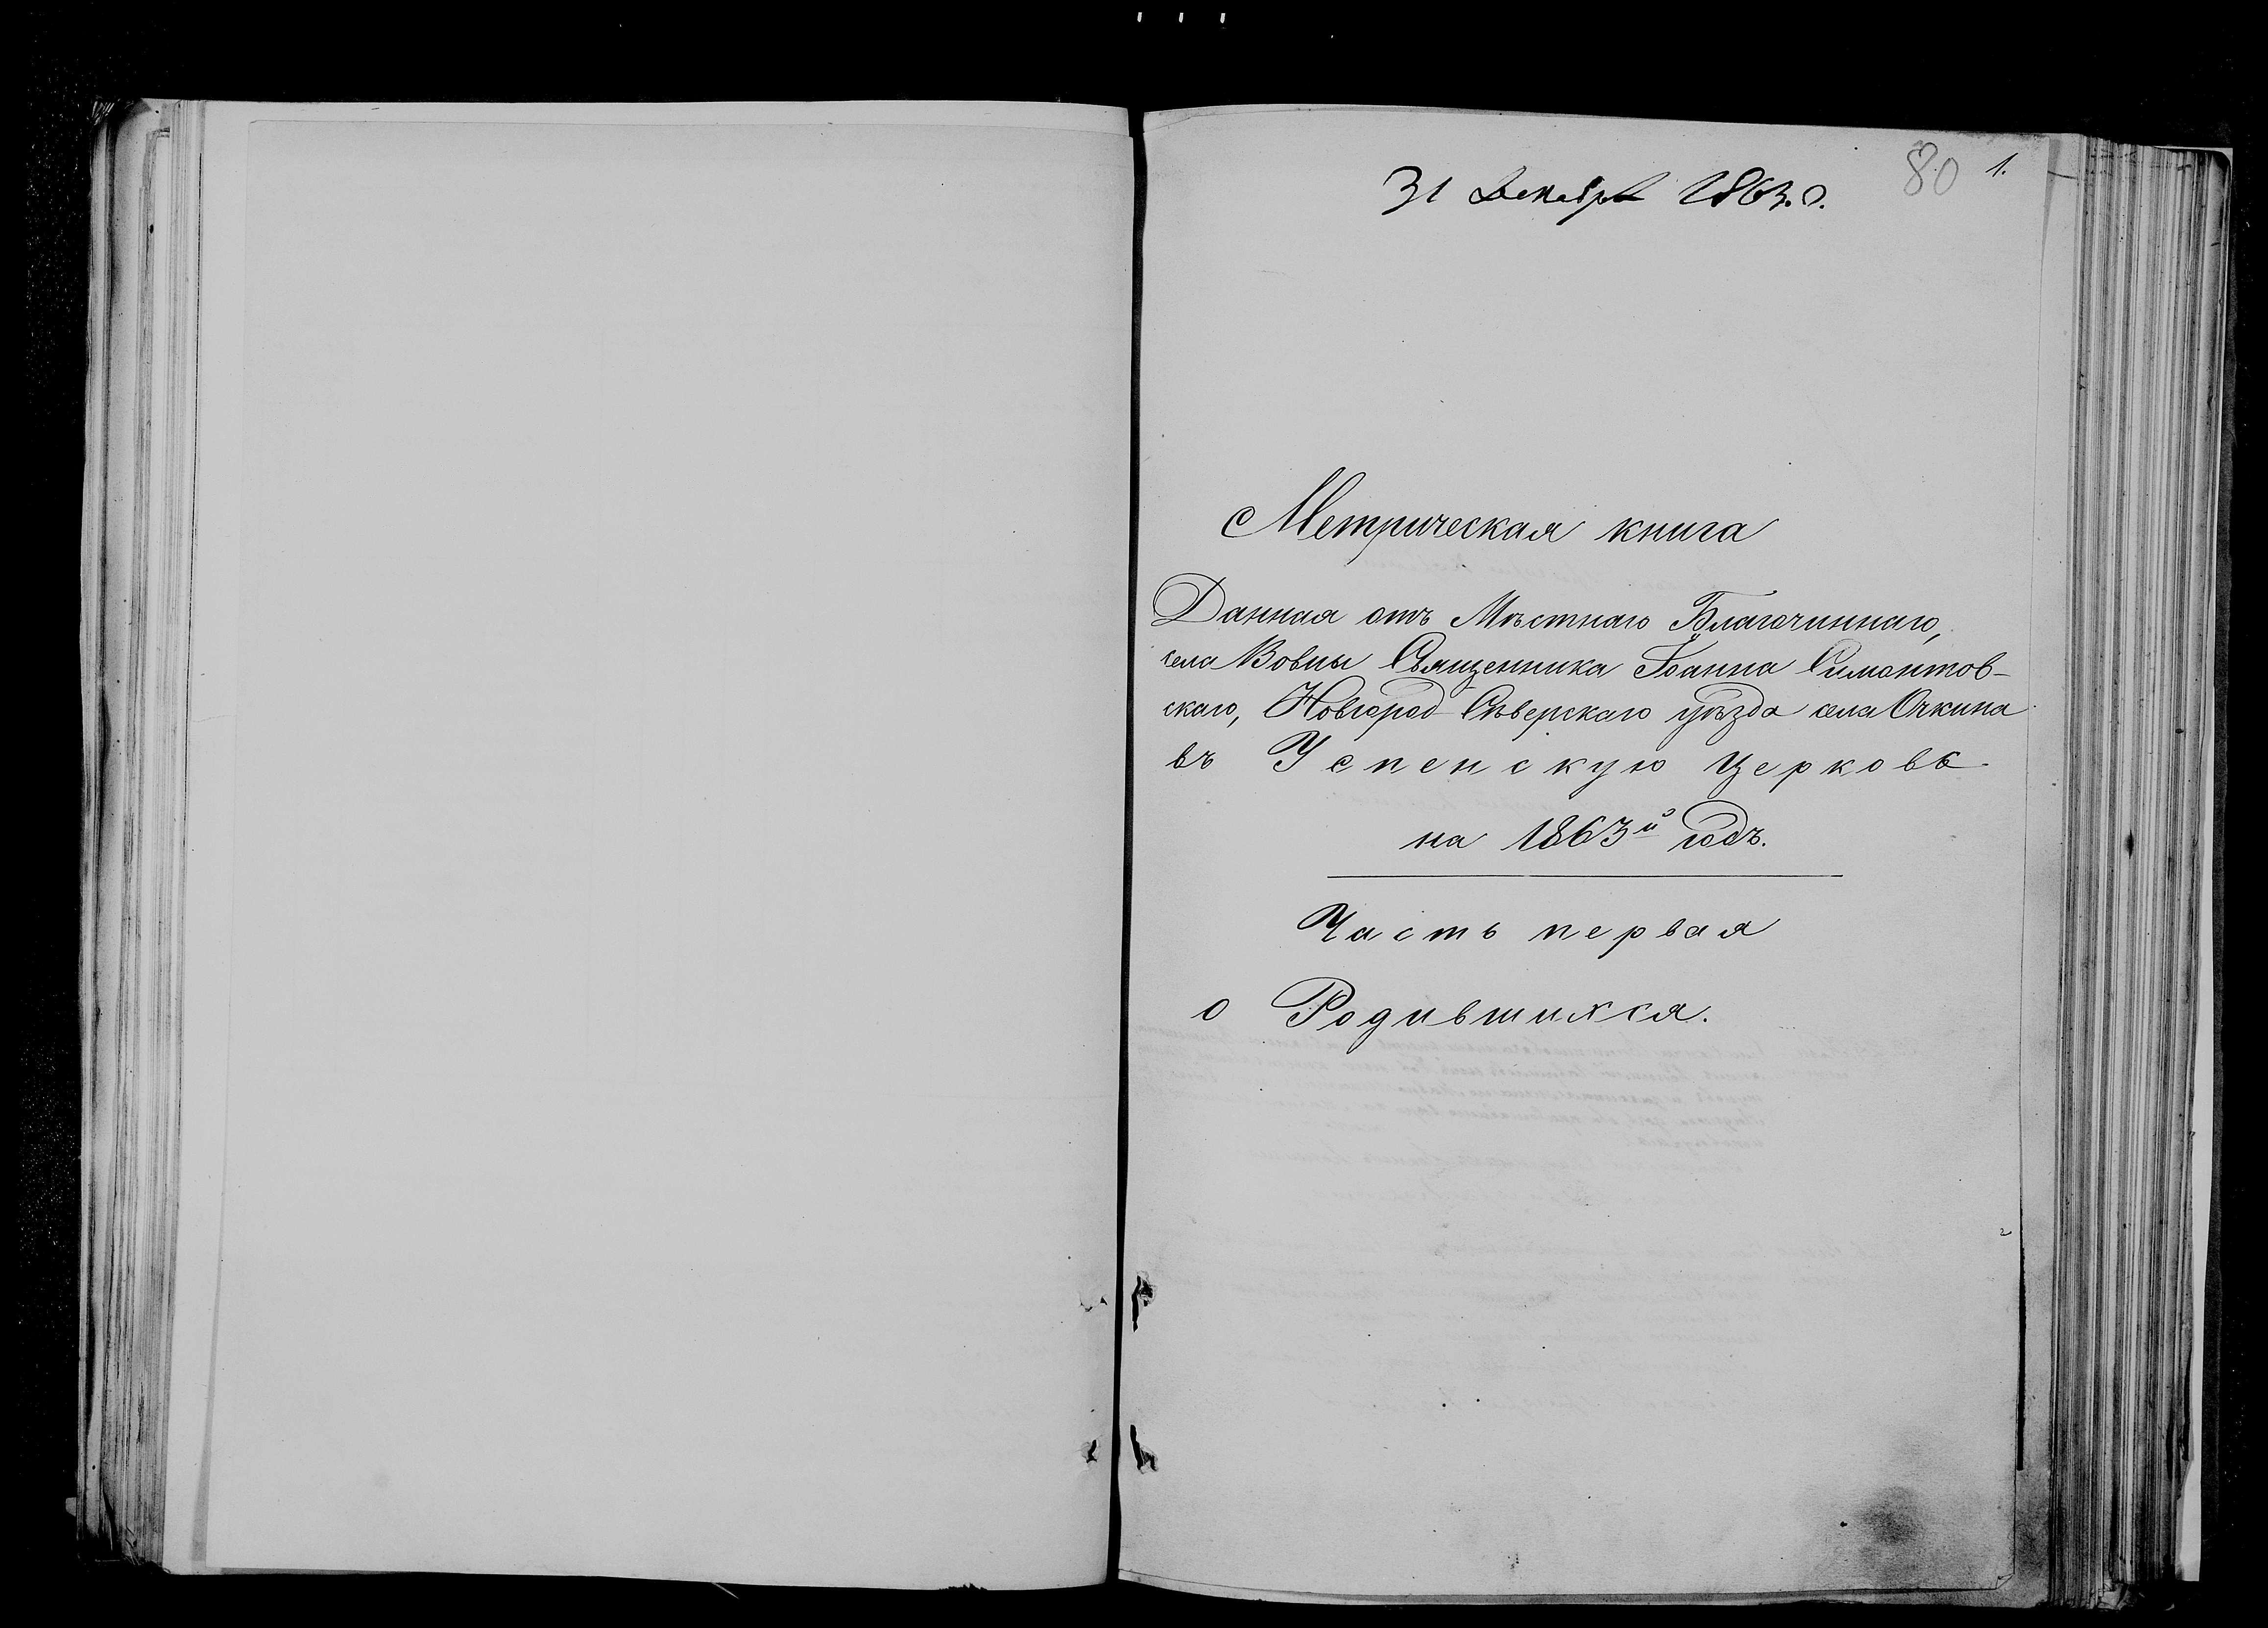 80 1.
31 Декабря 1863.г.
Метрическая книга
Данная отъ Мѣстнаго Благочиннаго,
села Вовны Священника Іоанна Симонтов-
скаго, Новгород-Сѣверскаго уѣзда села Очкина
въ Успенскую Церковь
на 1863й годъ.
Часть первая
о Родившихся.